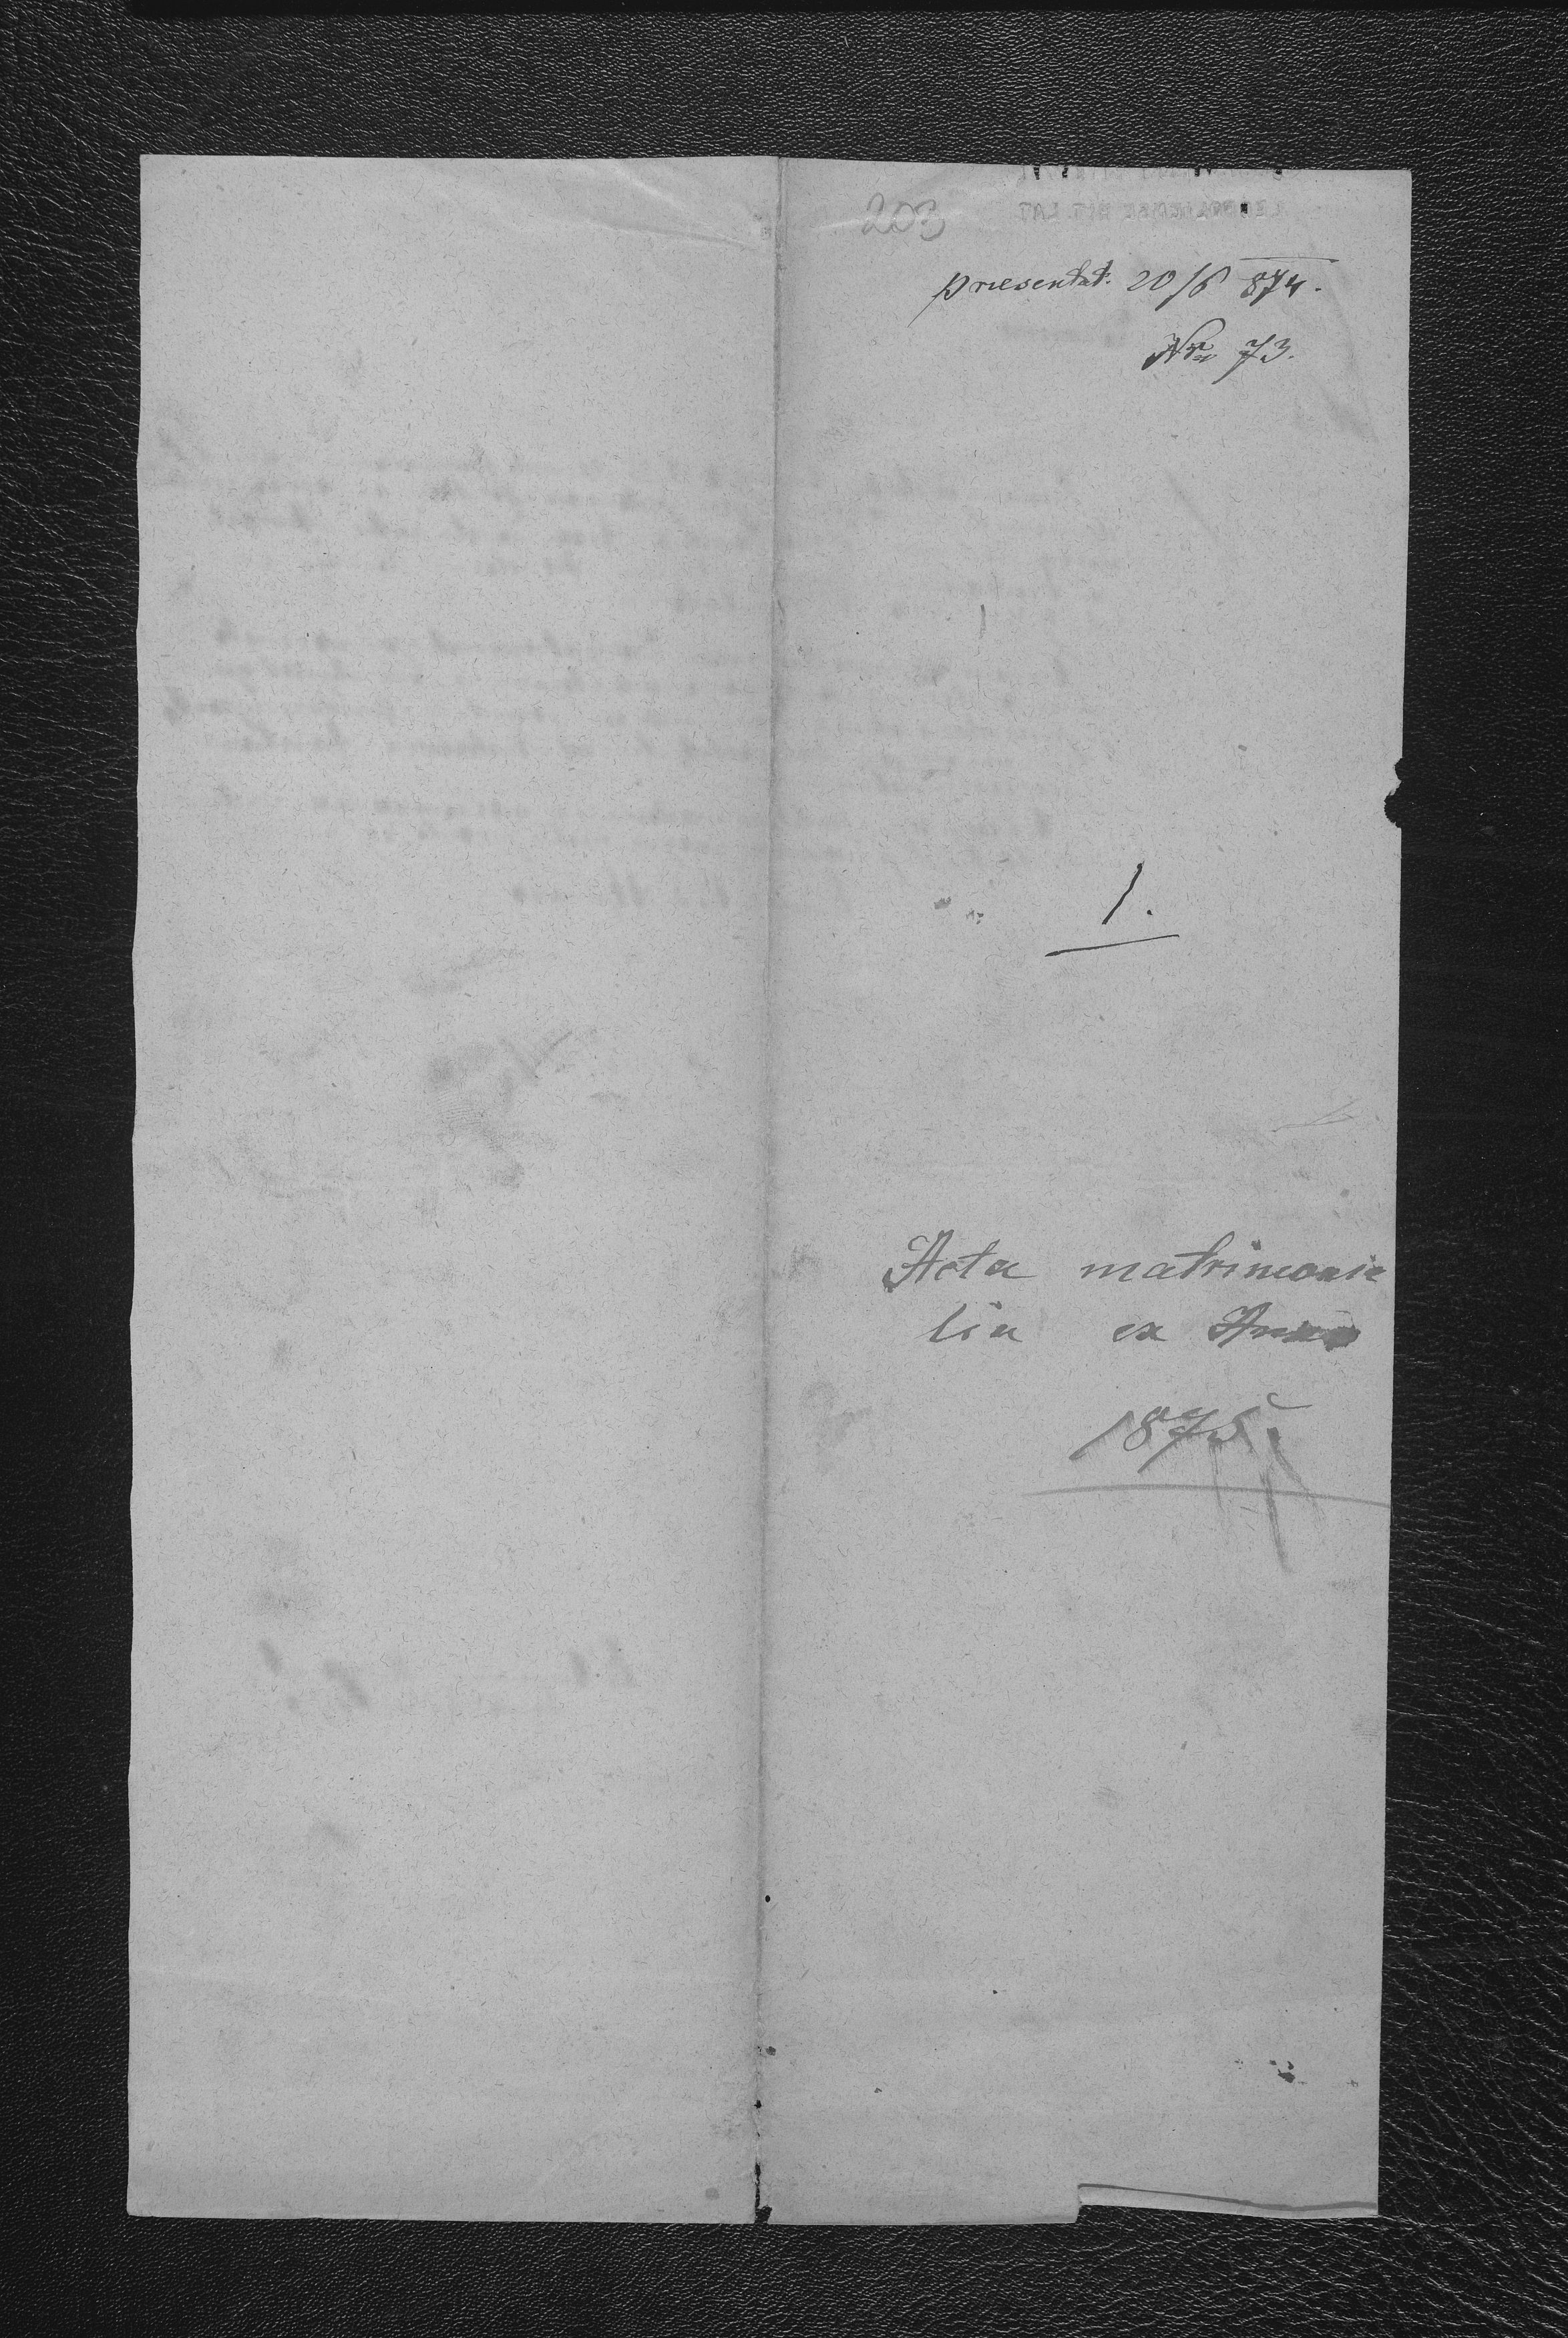 203
praesentat. 20/6 874.
Nr 73.
1.
Acta matrimonia
lia ex Anno
1875.